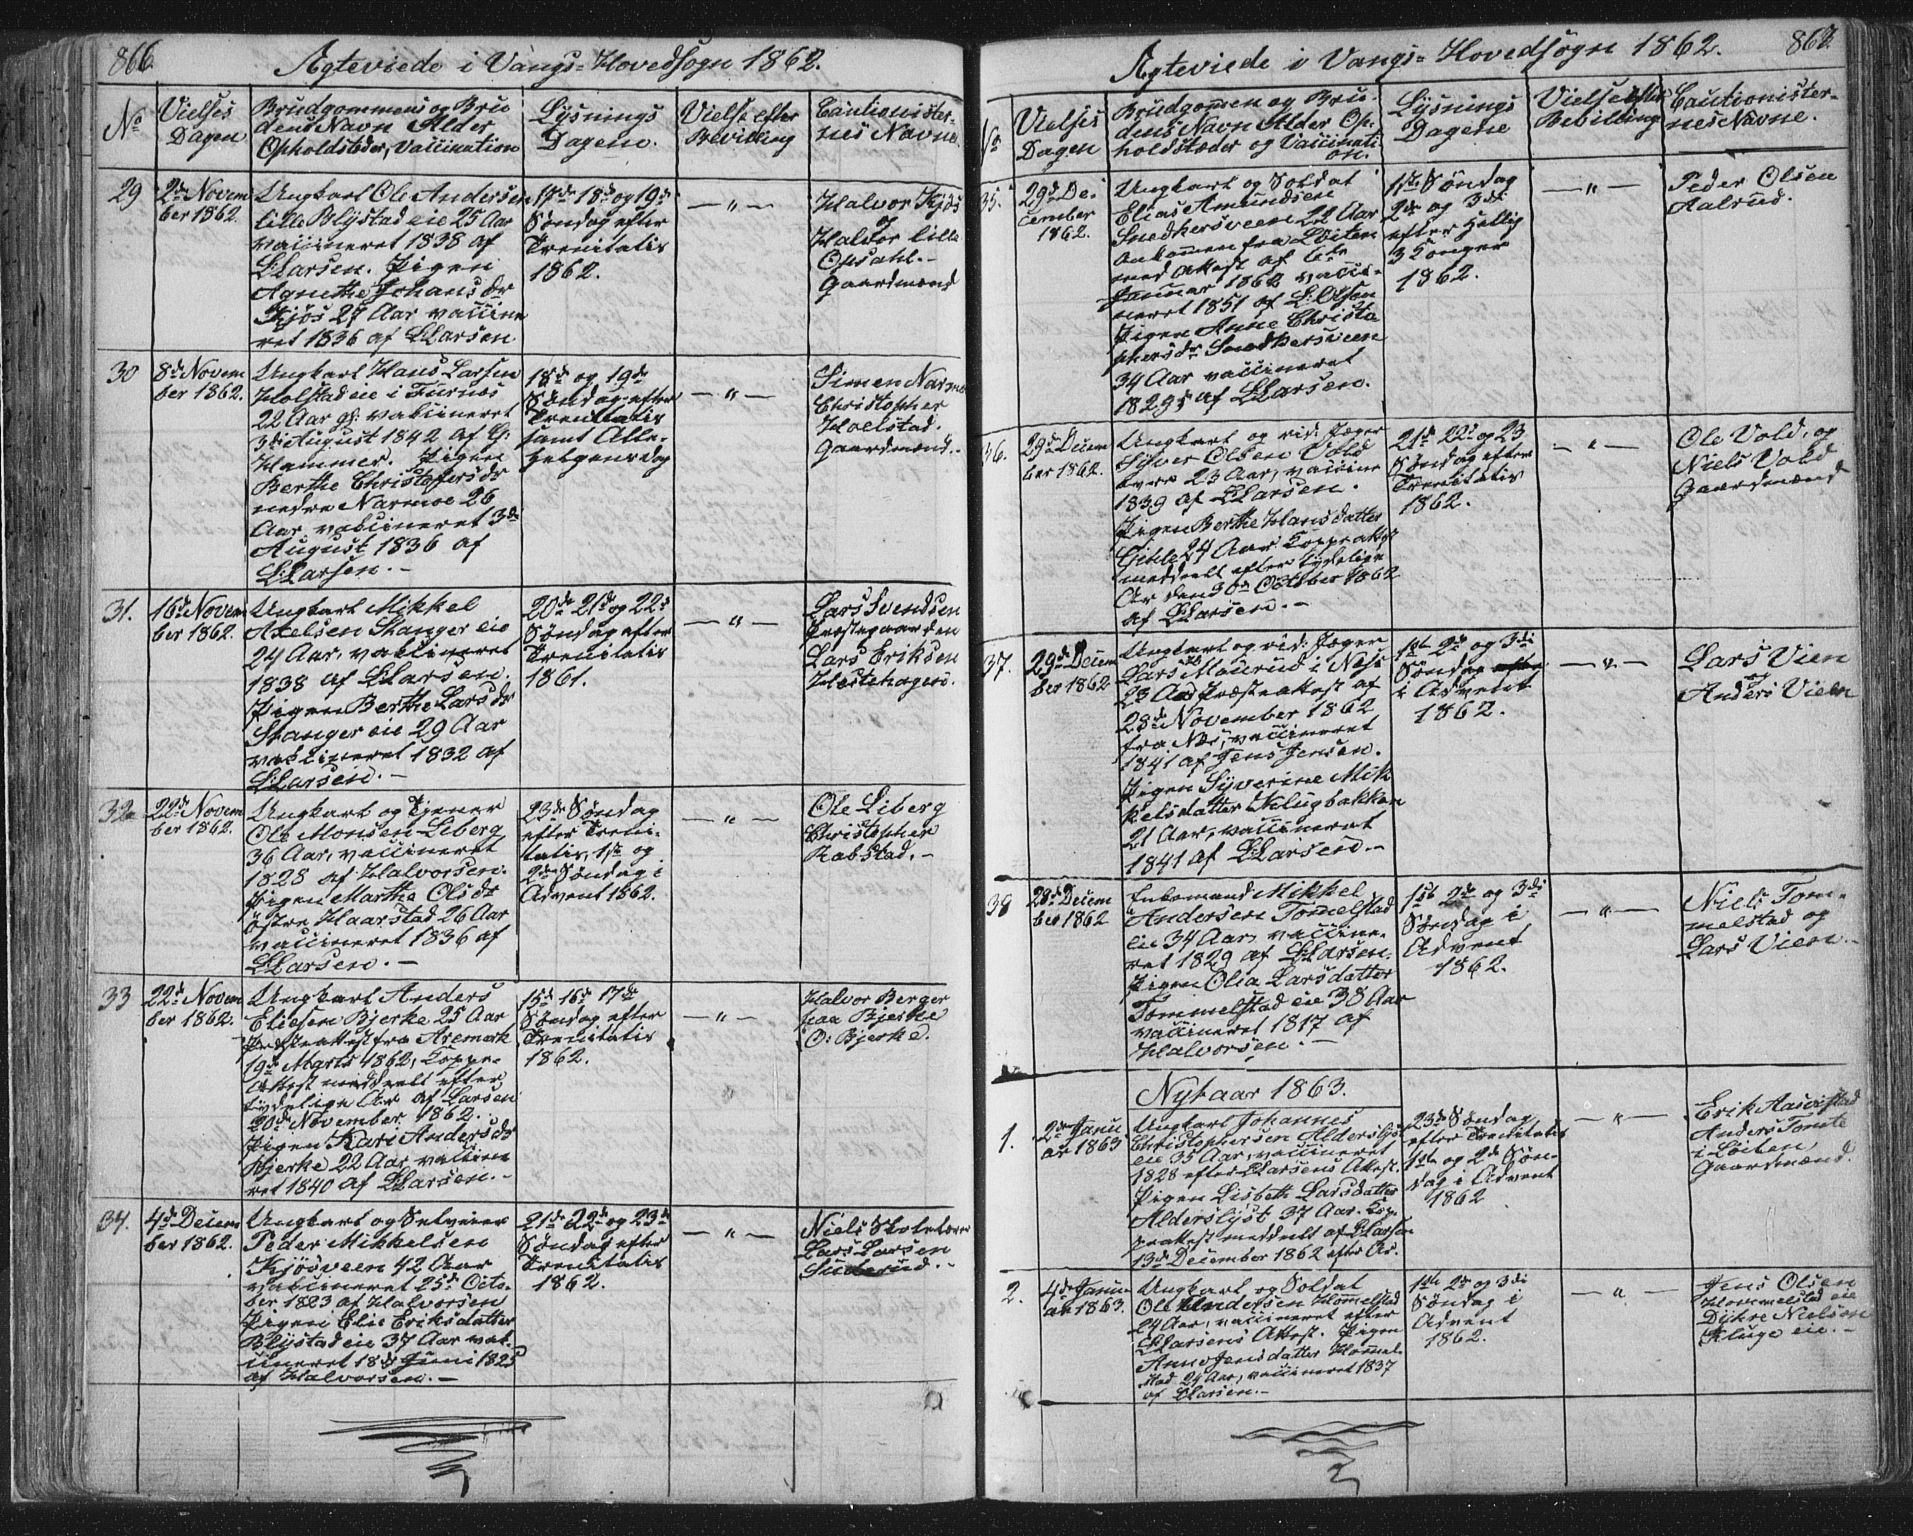 866
Agteviede i Vangs-Hovedsogn 1862.
No
Vielses
Dagen
Brudgommens og Bru
dens Navn Alder
Opholdsteder, Vaccination
Lysnings
Dagene.
Vielse efter
Bevilling
Cautionister-
nes Navne
29
2den Novem
ber 1862.
Ungkarl Ole Andersen
lille Blystad eie 25 Aar
vaccineret 1838 af
L. Larsen. Pigen
Agnethe Johans dr
Kjøs 27 Aar vaccine
ret 1836 af L. Larsen
17de 18de og 19de
Søndag efter
Trenitatis
1862.
— " —
Halvor Kjøs
og
Halvor lille
Opsahl.-
Gaardmænd
30
8de Novem
ber 1862.
Ungkarl Hans Larsen
Holstad eie i Furnæs
22 Aar gl. vaccineret
3di August 1842 af G.
Hammer. Pigen
Berthe Christofersdr
nedre Narmoe 26
Aar vaccineret 3de
August 1836 af
L. Larsen. —
18de og 19de
Søndag efter
Trenitatis
samt Alle-
helgensdag
— " —
Simen Narmo
Christopher
Hoelstad.
Gaardmænd.
31.
16de Novem
ber 1862.
Ungkarl Mikkel
Axelsen Stanger eie
24 Aar, vaccineret
1838 af L. Larsen.
Pigen Berthe Larsdr
Stanger eie 29 Aar
vaccineret 1832 af
L. Larsen. —
20de 21de og 22de
Søndag efter
Trenitatis
1861.
— " —
Lars Svendsen
Præstegaarden
Lars Eriksen
Hestehagen.
32
22de Novem
ber 1862.
Ungkarl og Tjener
Ole Monsen Liberg
36 Aar, vaccineret
1828 af Halvorsen.
Pigen Marthe Olsdr
østre Haarstad 26 Aar
vaccineret 1836 af
L. Larsen. —
23de Søndag
efter Treni-
tatis, 1ste og
2den Søndag i
Advent 1862.
— " —
Ole Liberg
og
Christopher
Rabstad. —
33
22de Novem
ber 1862.
Ungkarl Anders
Eliesen Bjerke 25 Aar
Præsteattest fra Aremark
19de Marts 1862, Koppe-
Attest meddeelt efter
tydelige Ar af Larsen
20de November 1862.
Pigen Kari Andersdr
Bjerke 22 Aar vaccine
ret 1840 af L. Larsen. —
15de 16de 17de
Søndag efter
Trenitatis
1862.
— " —
Halvor Berger
paa Bjerke
O: Bjerke.
34.
4de Decem
ber 1862.
Ungkarl og Selveier
Peder Mikkelsen
Kjøsveen 42 Aar
vaccineret 25de Octo-
ber 1823 af Halvorsen
Pigen Elie Eriksdatter
Blystad eie 37 Aar vac-
cineret 18de Juni 1825
af Halvorsen. —
21de 22de og 23de
Søndag efter
Trenitatis
1862.
— " —
Niels Skolelærer
Lars Larsen
Agteviede i Vangs-Hovedsogn 1862.
867.
No
Vielses
Dagen
Brudgomen og Bru-
dens Navn Alder Op-
holdstæder og Vaccinati
on.
Lysnings
Dagene
Vielse efter
Bebilling
Cautionister-
nes Navne.
35.
29de De
cember
1862.
Ungkarl og Soldat
Elias Amundsen
Snedkersveen 22 Aar
ankommen fra Løiten
med Attest af 6te
Januar 1862 vacci-
neret 1851 af L. Olsen
Pigen Anne Christo
phersdr Snedkersveen
34 Aar vaccineret
1829 af L. Larsen.
1ste Søndag
2de og 3di
efter Hellig
3 Konger
1862.
— " —
Peder Olsen
Aalrud.
36.
29de Decem
ber 1862.
Ungkarl og rid: Jæger
Syver Olsen Vold
23 Aar, vaccine
1839 af L. Larsen.
Pigen Berthe Hansdatter
Gihle 24 Aar Koppeattest
meddeelt efter tydelige
Ar den October 1862
af L. Larsen. —
21de 22de og 23
Søndag efter
Trenitatis
1862.
— " —
Ole Vold, og
Niels Vold
Gaardmænd
37.
29de Decem
ber 1862
Ungkarl og rid: Jæger
Lars Maurud i Næs
23 Aar Præsteattest af
28de November 1862
fra Næs, vaccineret
1841 af Jens Jensen.
Pigen Syverine Mik
kelsdatter Klugbakken
21 Aar, vaccineret
1841 af L. Larsen —
1ste 2de og 3di
Søndag
i Advent
1862.
— " —
Lars Vien
og
Anders Vien
38
29de Decem
ber 1862
Enkemand Mikkel
Andersen Tommelstad
eie 34 Aar, vaccine-
ret 1829 af L. Larsen.
Pigen Olia Larsdatter
Tommelstad eie 38 Aar
vaccineret 1817 af
Halvorsen. —
1ste 2de og 3di
Søndag i
Advent
1862.
— " —
Niels Tom-
melstad og
Lars Vien. —
Nytaar 1863.
1.
2de Janu
ar 1863
Ungkarl Johannes
Christophersen Alderslyst
eie 35 Aar, vaccineret
1828 efter L. Larsens Attest.
Pigen Lisbeth Larsdatter
Alderslyst 37 Aar. Kop-
peattest meddelt af L. Larsen
13de December 1862 efter Ar.
23de Søndag
efter Trenitatis
1ste og 2de Søn-
dag i Advent
1862
— " —
Erik Aasvistad
Anders Tomte
i Løiten
Gaardmænd.
2.
4de Janu
ar 1863.
Ungkarl og Soldat
Ole Andersen Hommelstad
24 Aar, vaccineret efter
L. Larsens Attest. Pigen
Anne Jensdatter Hommel-
stad 24 Aar, vaccineret 1837
af L. Larsen. —
1ste 2de og 3di
Søndag i
Advent
1862.
— " —
Jens Olsen
Hommelstad eie
Dyhre Nielsen
Kluge eie. —